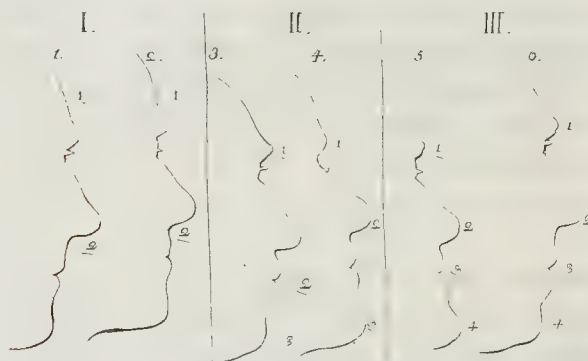 I. II. III.
1. 2. 3. 4. 5 6.
1. 1
1 1 1 1
2 2 2 2
2 3 3
2
3 3 4 4